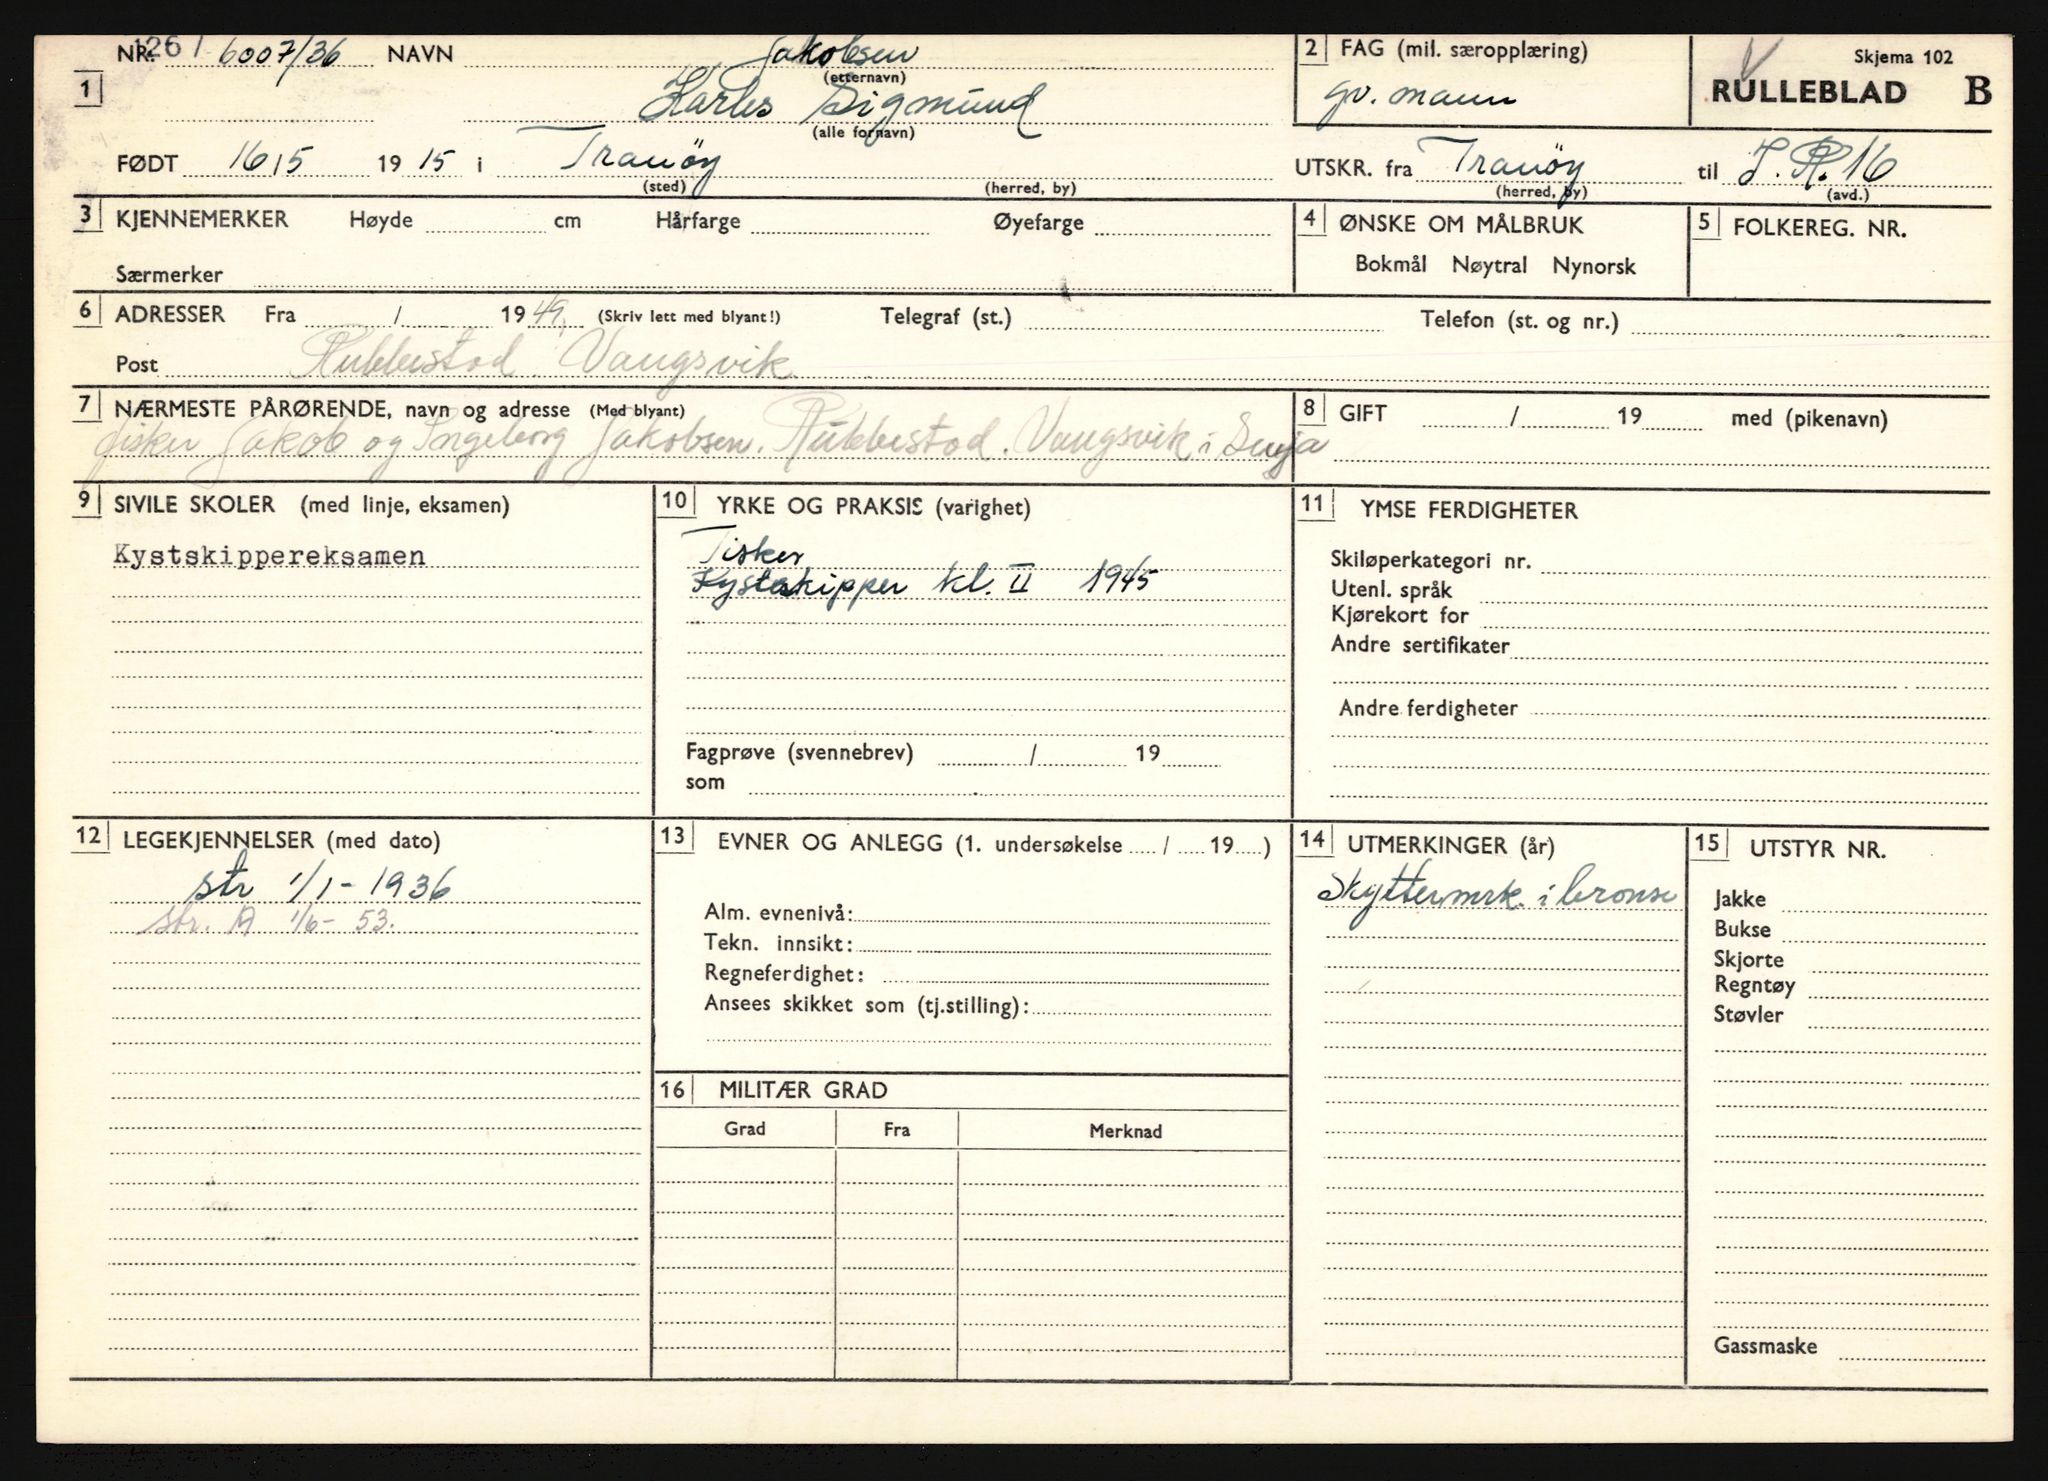 NR. 1261 6007/36 NAVN Jakobsen
(etternavn)
1 Karles Sigmund
(alle fornavn)
FØDT 16/5 1915 i Tranöy
(sted) (herred, by)
2 FAG (mil. særopplæring)
gv. mann
Skjema 102
RULLEBLAD B
UTSKR. fra Tranöy til I.R. 16
(herred, by) (avd.)
3 KJENNEMERKER Høyde cm Hårfarge Øyefarge
Særmerker
4 ØNSKE OM MÅLBRUK
Bokmål Nøytral Nynorsk
5 FOLKEREG. NR.
6 ADRESSER Fra / 1949 (Skriv lett med blyant!) Telegraf (st.) Telefon (st. og nr.)
Post Rubbestad. Vangsvik
7 NÆRMESTE PÅRØRENDE, navn og adresse (Med blyant)
fisker Jakob og Ingeborg Jakobsen. Rubbestad. Vangsvik i Senja
8 GIFT / 19 med (pikenavn)
9 SIVILE SKOLER (med linje, eksamen)
Kystskippereksamen
10 YRKE OG PRAKSIS (varighet)
Fisker
Kystskipper kl. II 1945
Fagprøve (svennebrev) / 19
som
11 YMSE FERDIGHETER
Skiløperkategori nr.
Utenl. språk
Kjørekort for
Andre sertifikater
Andre ferdigheter
12 LEGEKJENNELSER (med dato)
str 1/1-1936
str. A 1/6-53.
13 EVNER OG ANLEGG (1. undersøkelse / 19 )
Alm. evnenivå:
Tekn. innsikt:
Regneferdighet:
Ansees skikket som (tj.stilling):
14 UTMERKINGER (år)
Skyttermrk. i bronse
15 UTSTYR NR.
Jakke
Bukse
Skjorte
Regntøy
Støvler
Gassmaske
16 MILITÆR GRAD
Grad Fra Merknad